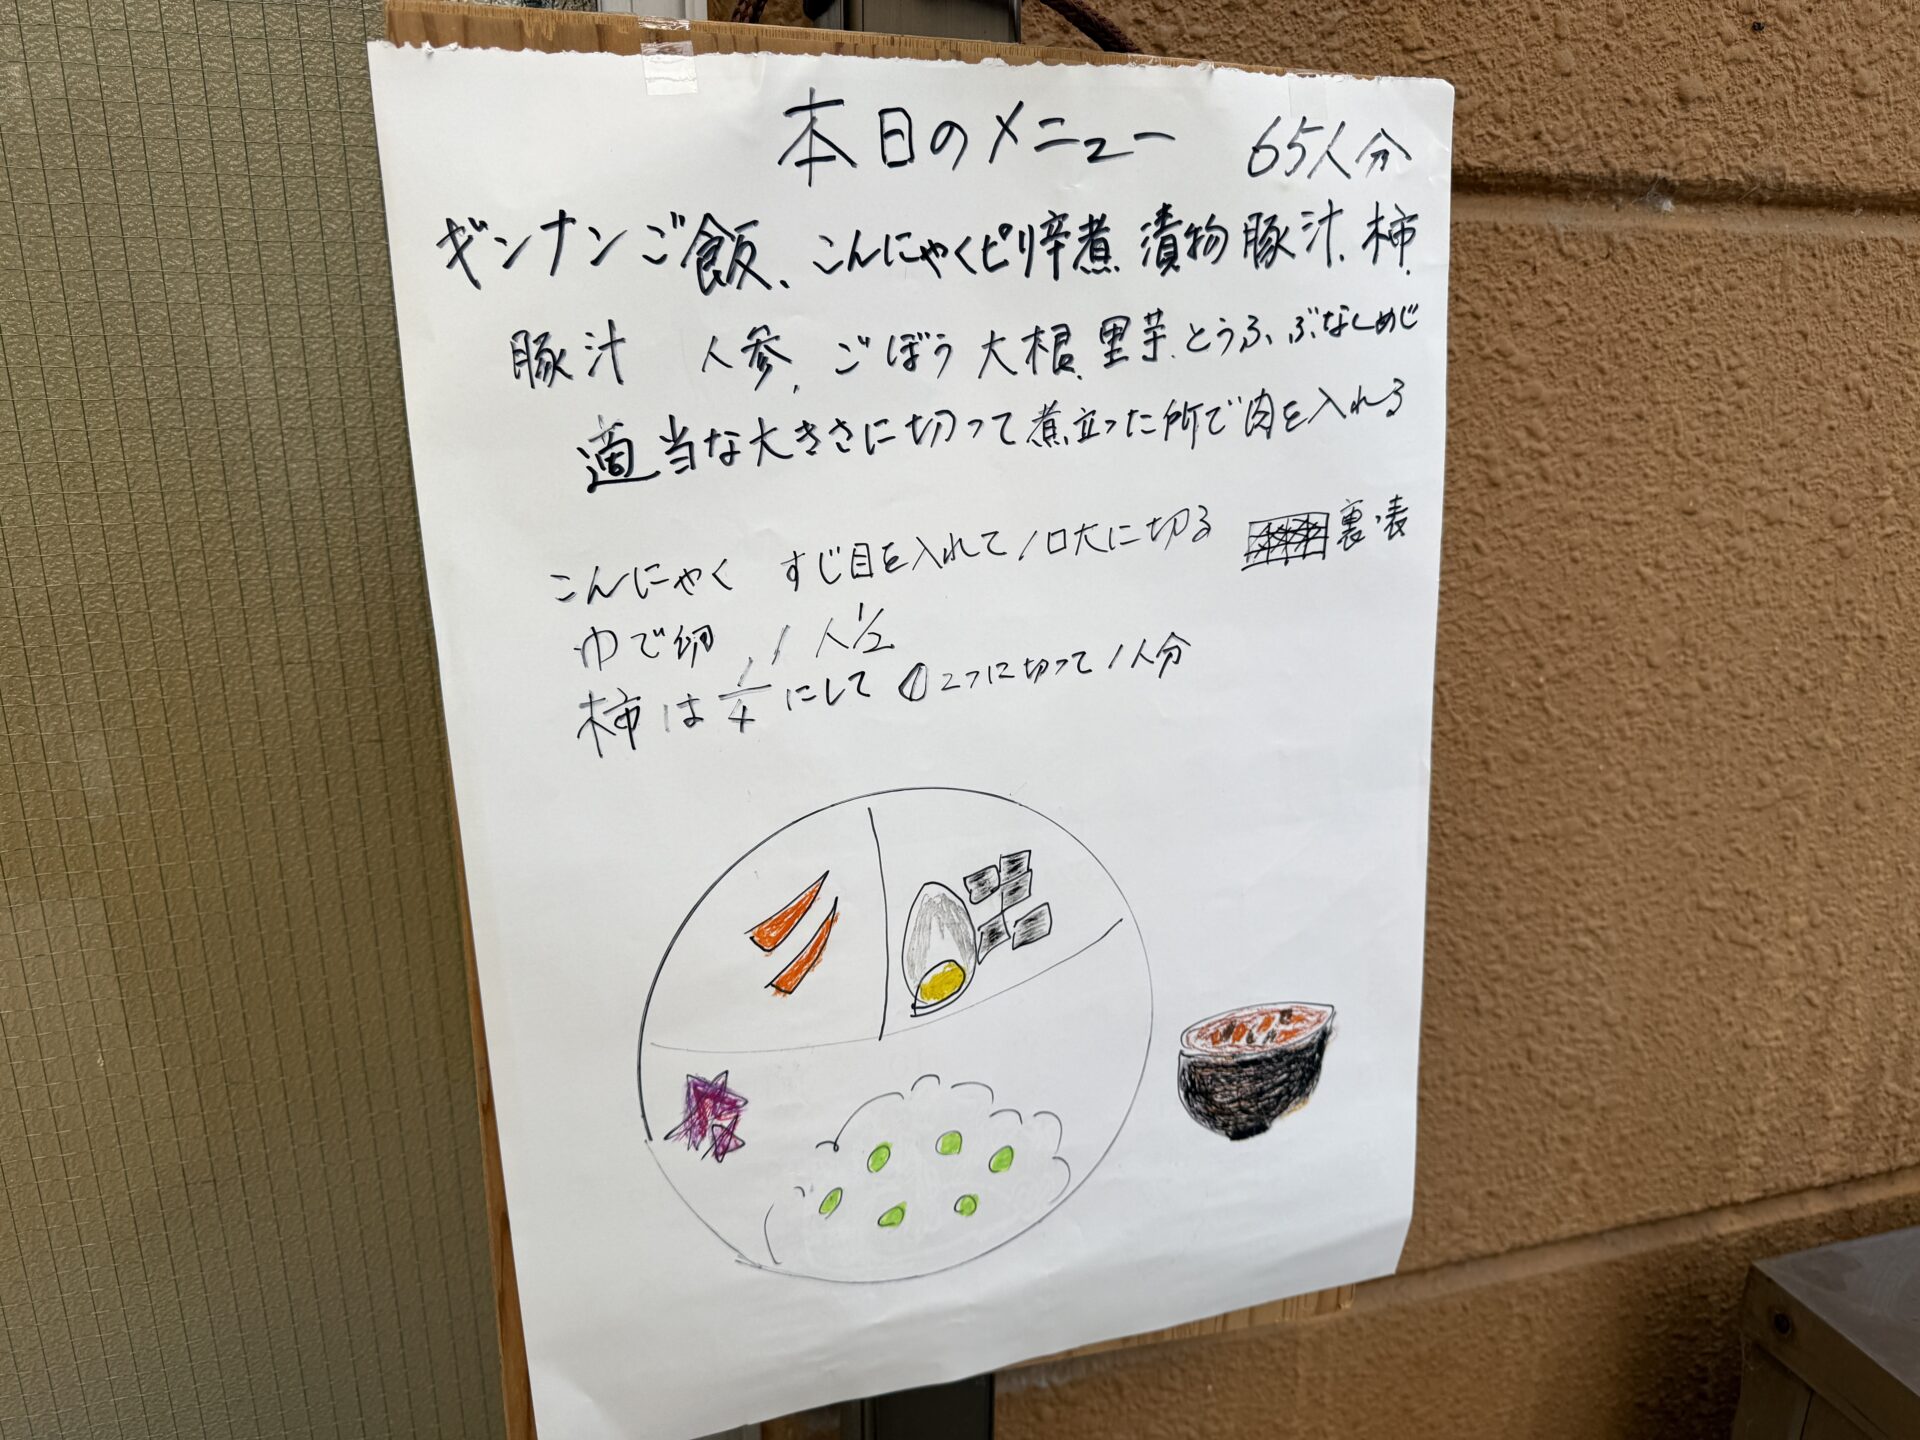 本日のメニュー 65人分
ギンナンご飯、こんにゃくピリ辛煮、漬物 豚汁、柿、
豚汁 人参、ごぼう 大根、里芋、とうふ、ぶなしめじ
適当な大きさに切って煮立った所で肉を入れる
こんにゃく すじ目を入れて1口大に切る 裏・表
ゆで卵 1人1/2
柿は1/4にして 2つに切って1人分